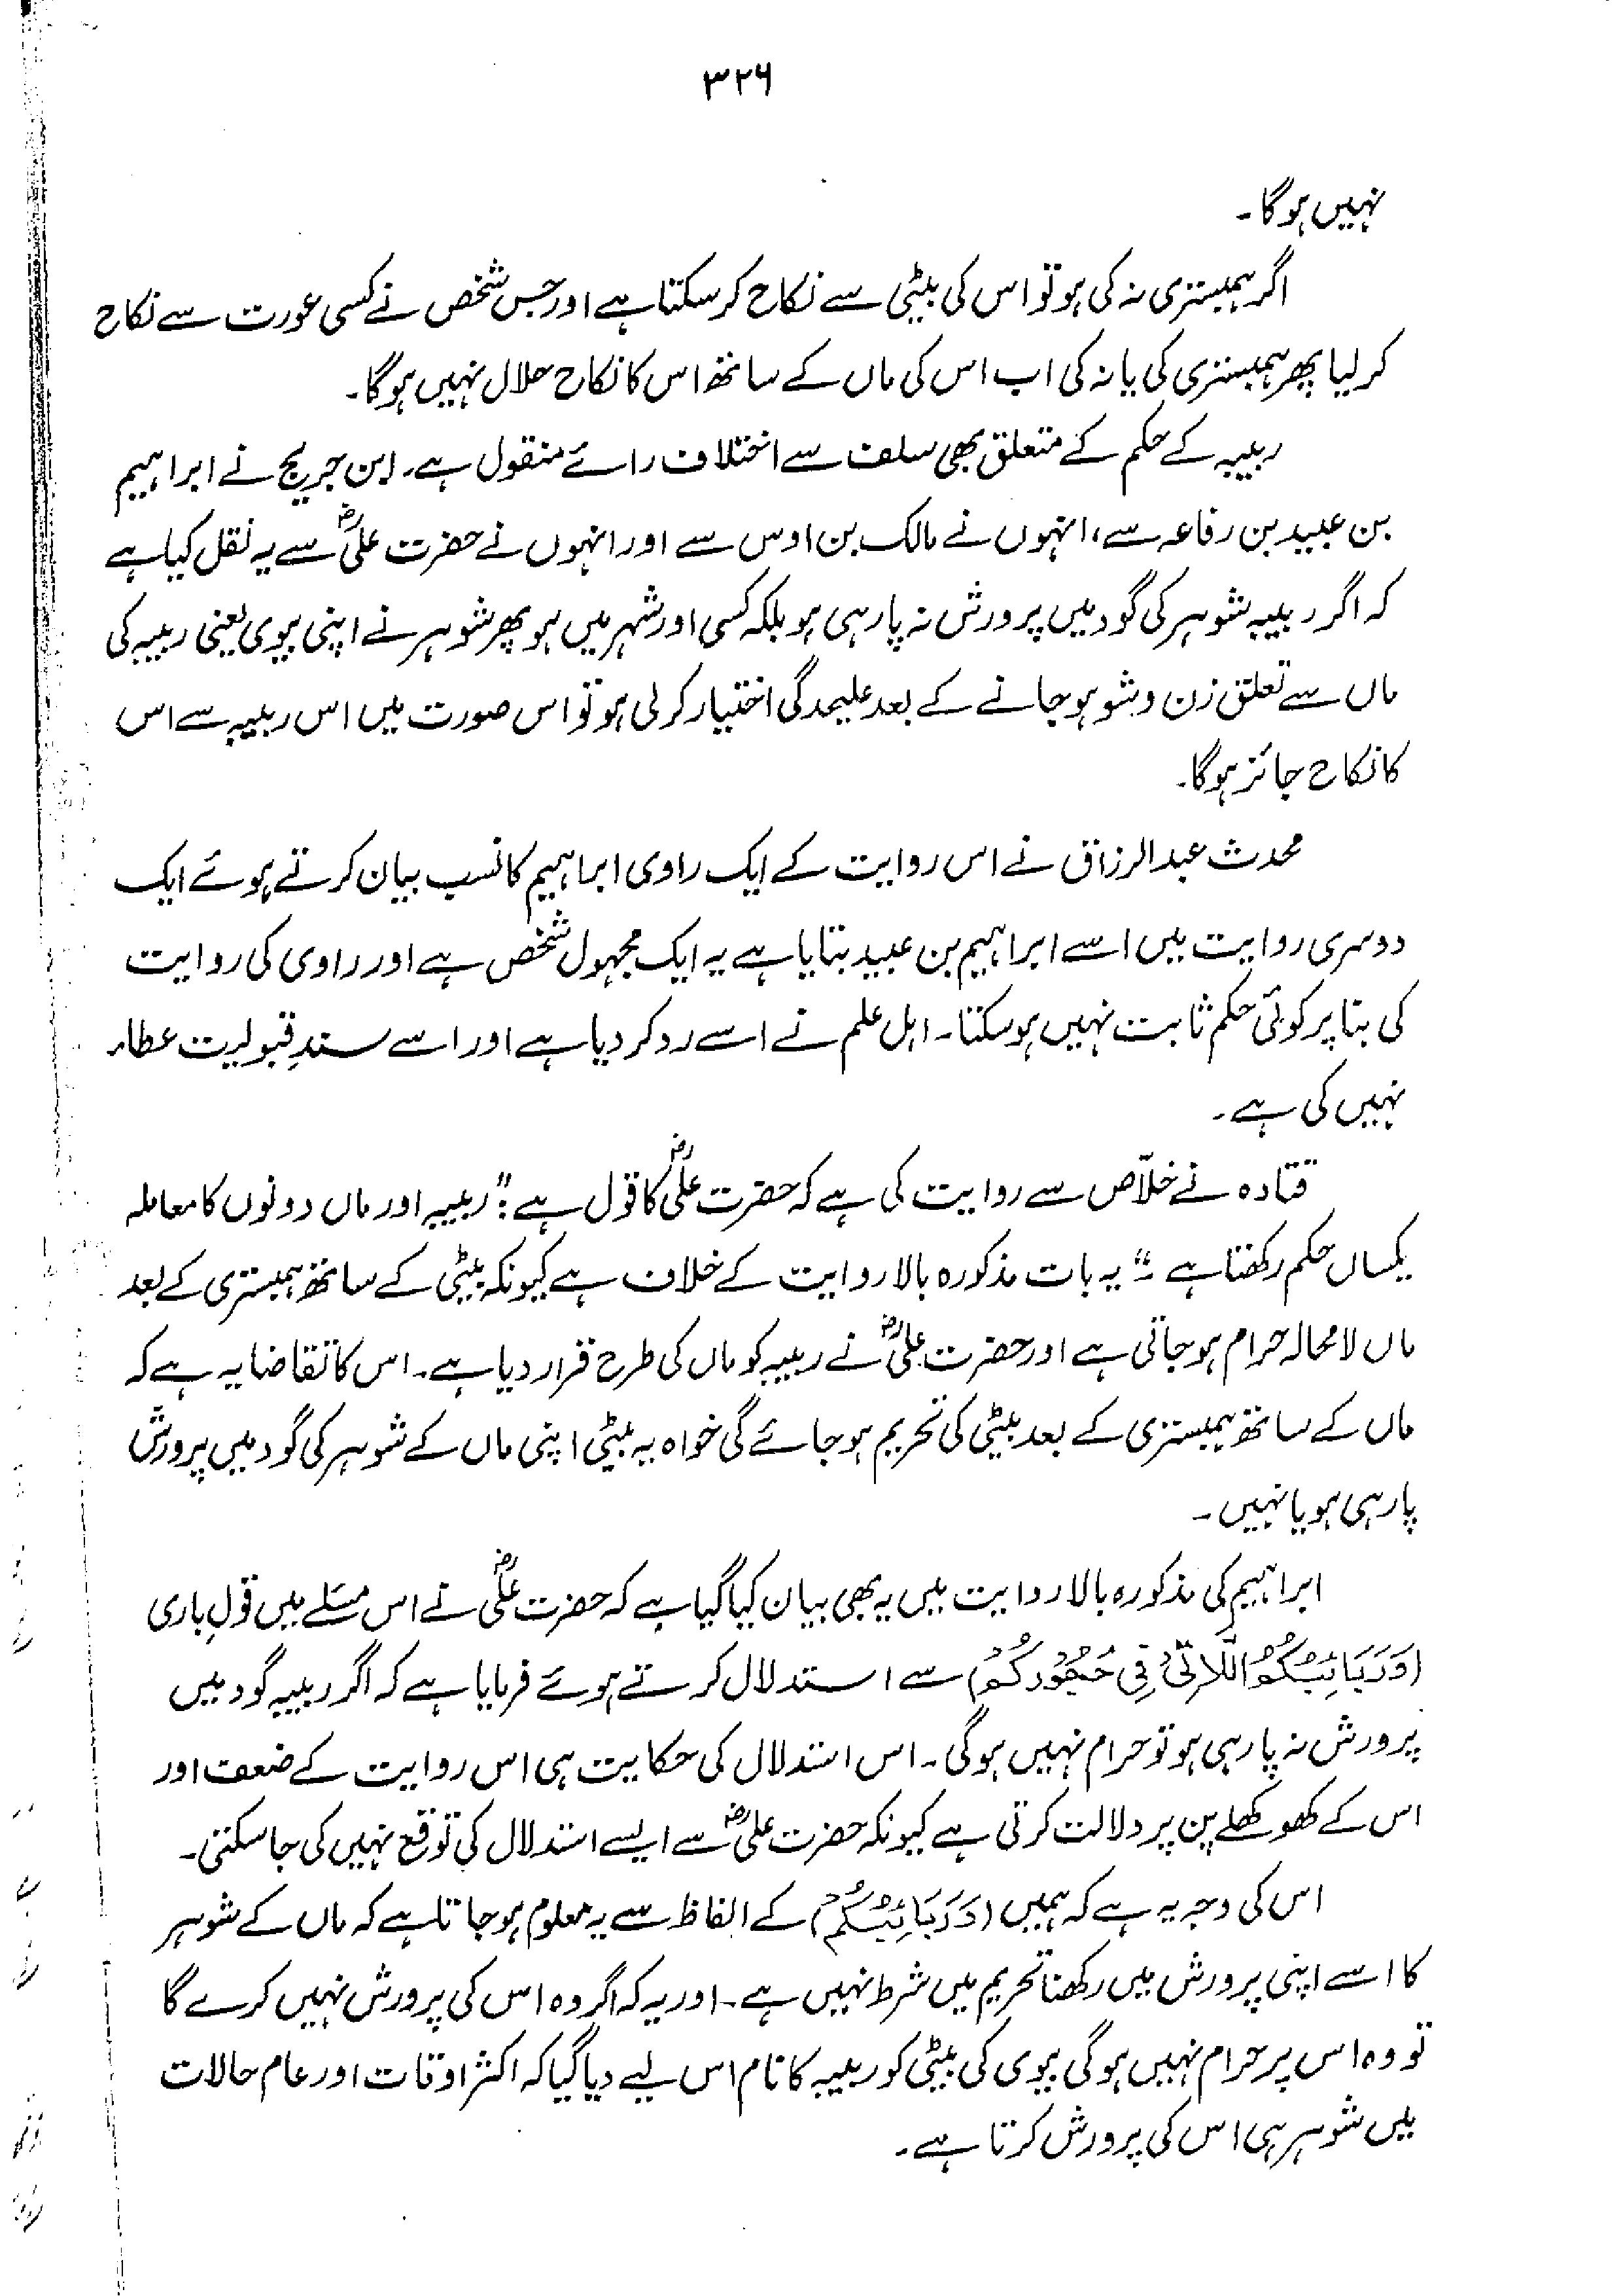 ۳۲۶
نہیں ہوگا۔
اگر ہمبستری نہ کی ہو تو اس کی بیٹی سے نکاح کر سکتا ہے اور جس شخص نے کسی عورت سے نکاح
کر لیا پھر ہمبستری کی یا نہ کی اب اس کی ماں کے ساتھ اس کا نکاح حلال نہیں ہوگا۔
ربیبہ کے حکم کے متعلق بھی سلف سے اختلاف رائے منقول ہے۔ ابن جریج نے ابراہیم
بن عبید بن رفاعہ سے، انہوں نے مالک بن اوس سے اور انہوں نے حضرت علیؓ سے یہ نقل کیا ہے
کہ اگر ربیبہ شوہر کی گود میں پرورش نہ پا رہی ہو بلکہ کسی اور شہر میں ہو پھر شوہر نے اپنی بیوی یعنی ربیبہ کی
ماں سے تعلق زن و شو ہو جانے کے بعد علیحدگی اختیار کر لی ہو تو اس صورت میں اس ربیبہ سے اس
کا نکاح جائز ہوگا۔
محدث عبدالرزاق نے اس روایت کے ایک راوی ابراہیم کا نسب بیان کرتے ہوئے ایک
دوسری روایت میں اسے ابراہیم بن عبید بتایا ہے یہ ایک مجہول شخص ہے اور راوی کی روایت
کی بنا پر کوئی حکم ثابت نہیں ہو سکتا۔ اہل علم نے اسے رد کر دیا ہے اور اسے سندِ قبولیت عطاء
نہیں کی ہے۔
قتادہ نے خلّاص سے روایت کی ہے کہ حضرت علیؓ کا قول ہے: "ربیبہ اور ماں دونوں کا معاملہ
یکساں حکم رکھتا ہے۔" یہ بات مذکورہ بالا روایت کے خلاف ہے کیونکہ بیٹی کے ساتھ ہمبستری کے بعد
ماں لامحالہ حرام ہو جاتی ہے اور حضرت علیؓ نے ربیبہ کو ماں کی طرح قرار دیا ہے۔ اس کا تقاضا یہ ہے کہ
ماں کے ساتھ ہمبستری کے بعد بیٹی کی تحریم ہو جائے گی خواہ یہ بیٹی اپنی ماں کے شوہر کی گود میں پرورش
پا رہی ہو یا نہیں۔
ابراہیم کی مذکورہ بالا روایت میں یہ بھی بیان کیا گیا ہے کہ حضرت علیؓ نے اس مسئلے میں قولِ باری
(وَرَبَائِبُكُمُ اللَّاتِیْ فِی حُجُوْرِكُمْ) سے استدلال کرتے ہوئے فرمایا ہے کہ اگر ربیبہ گود میں
پرورش نہ پا رہی ہو تو حرام نہیں ہوگی۔ اس استدلال کی حکایت ہی اس روایت کے ضعف اور
اس کے کھوکھلے پن پر دلالت کرتی ہے کیونکہ حضرت علیؓ سے ایسے استدلال کی توقع نہیں کی جا سکتی۔
اس کی وجہ یہ ہے کہ ہمیں (وَرَبَائِبُكُمْ) کے الفاظ سے یہ معلوم ہو جاتا ہے کہ ماں کے شوہر
کا اسے اپنی پرورش میں رکھنا تحریم میں شرط نہیں ہے۔ اور یہ کہ اگر وہ اس کی پرورش نہیں کرے گا
تو وہ اس پر حرام نہیں ہوگی بیوی کی بیٹی کو ربیبہ کا نام اس لیے دیا گیا کہ اکثر اوقات اور عام حالات
میں شوہر ہی اس کی پرورش کرتا ہے۔